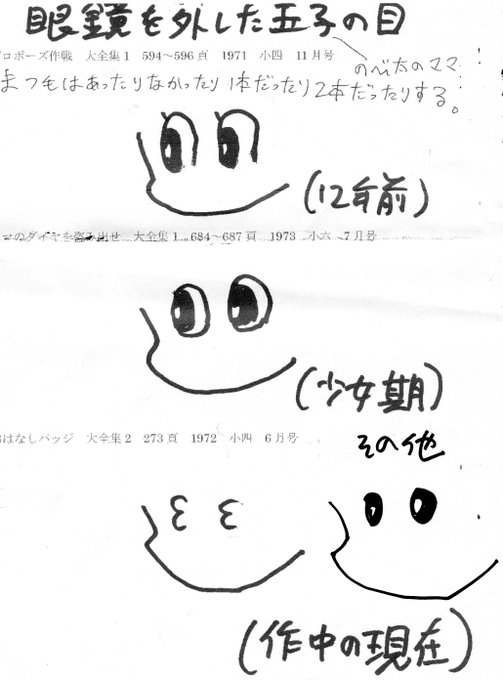 眼鏡を外した玉子の目
プロポーズ作戦 大全集1 594~596頁 1971 小四 11月号
のび太のママ
まつ毛はあったりなかったり1本だったり2本だったりする。
(12年前)
マのダイヤを盗み出せ 大全集1 684~687頁 1973 小六 7月号
(少女期)
おはなしバッジ 大全集2 273頁 1972 小四 6月号
その他
(作中の現在)